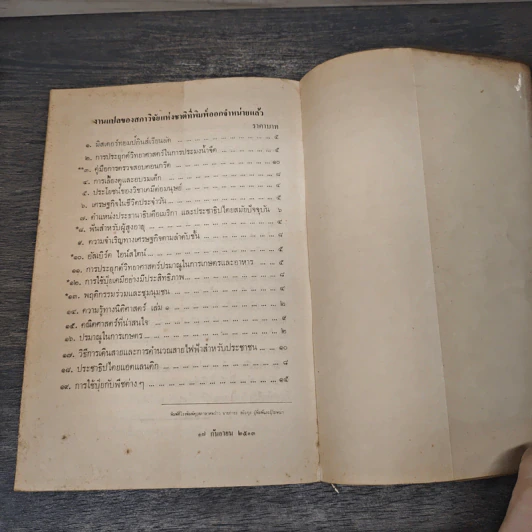 งานแปลของสภาวิจัยแห่งชาติที่พิมพ์ออกจำหน่ายแล้ว
ราคาบาท
๑. มิสเตอร์ทอมป์กินส์เรียนลัด ... ... ... ... ๕
๒. การประยุกต์วิทยาศาสตร์ในการประมงน้ำจืด ... ... ... ๕
**๓. คู่มือการตรวจสอบคอนกรีต ... ... ... ... ๑๐
๔. การเลี้ยงดูและอบรมเด็ก ... ... ... ...
๕. ประโยชน์ของวิชาเคมีต่อมนุษย์ ... ... ... ...
๖. เศรษฐกิจในชีวิตประจำวัน ... ... ... ...
๗. ตำแหน่งประธานาธิบดีอเมริกา และประชาธิปไตยสมัยปัจจุบัน ๖
*๘. ฟันสำหรับผู้สูงอายุ ... ... ... ...
๙. ความจำเริญทางเศรษฐกิจตามลำดับขั้น ... ... ๘
*๑๐. อัลเบิร์ต ไอน์สไตน์ ... ... ... ... ๕
๑๑. การประยุกต์วิทยาศาสตร์ปรมาณูในการเกษตรและอาหาร ... ๕
*๑๒. การใช้ปุ๋ยเคมีอย่างมีประสิทธิภาพ ... ... ... ๘
*๑๓. พฤติกรรมร่วมและชุมนุมชน ... ... ... ... ๕
๑๔. ความรู้ทางนิติศาสตร์ เล่ม ๑ ... ... ... ๒
๑๕. คณิตศาสตร์ที่น่าสนใจ ... ... ... ... ๙
๑๖. ปรมาณูในการเกษตร ... ... ... ... ๒
๑๗. วิธีการเดินสายและการคำนวณสายไฟฟ้าสำหรับประชาชน ... ๑๐
๑๘. ประชาธิปไตยแยคแลนติก ... ... ... ... ๘
๑๙. การใช้ปุ๋ยกับพืชต่าง ๆ ... ... ... ... ๑๕
๑๗ กันยายน ๒๕๑๓